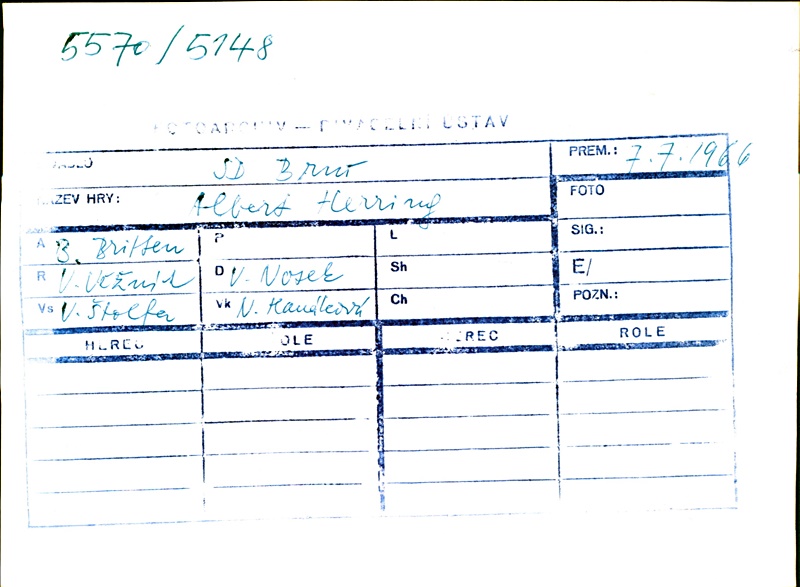 5570/5148
FOTOARCHIV — DIVADELNÍ ÚSTAV
DIVADLO SD Brno PREM.: 7.7.1966
NÁZEV HRY: Albert Herring FOTO
A B. Britten P L SIG.:
R V. Věžník D V. Nosek Sh E/
Vs V. Štolfa Vk N. Hanáková Ch POZN.:
HEREC ROLE HEREC ROLE